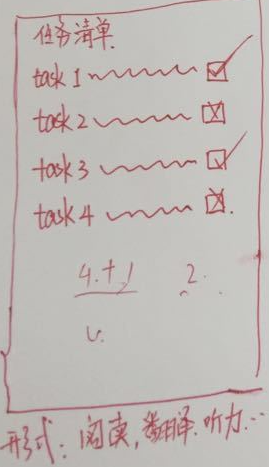 任务清单
task 1
task 2
task 3
task 4
4.+1 2.
形式：阅读，翻译．听力…